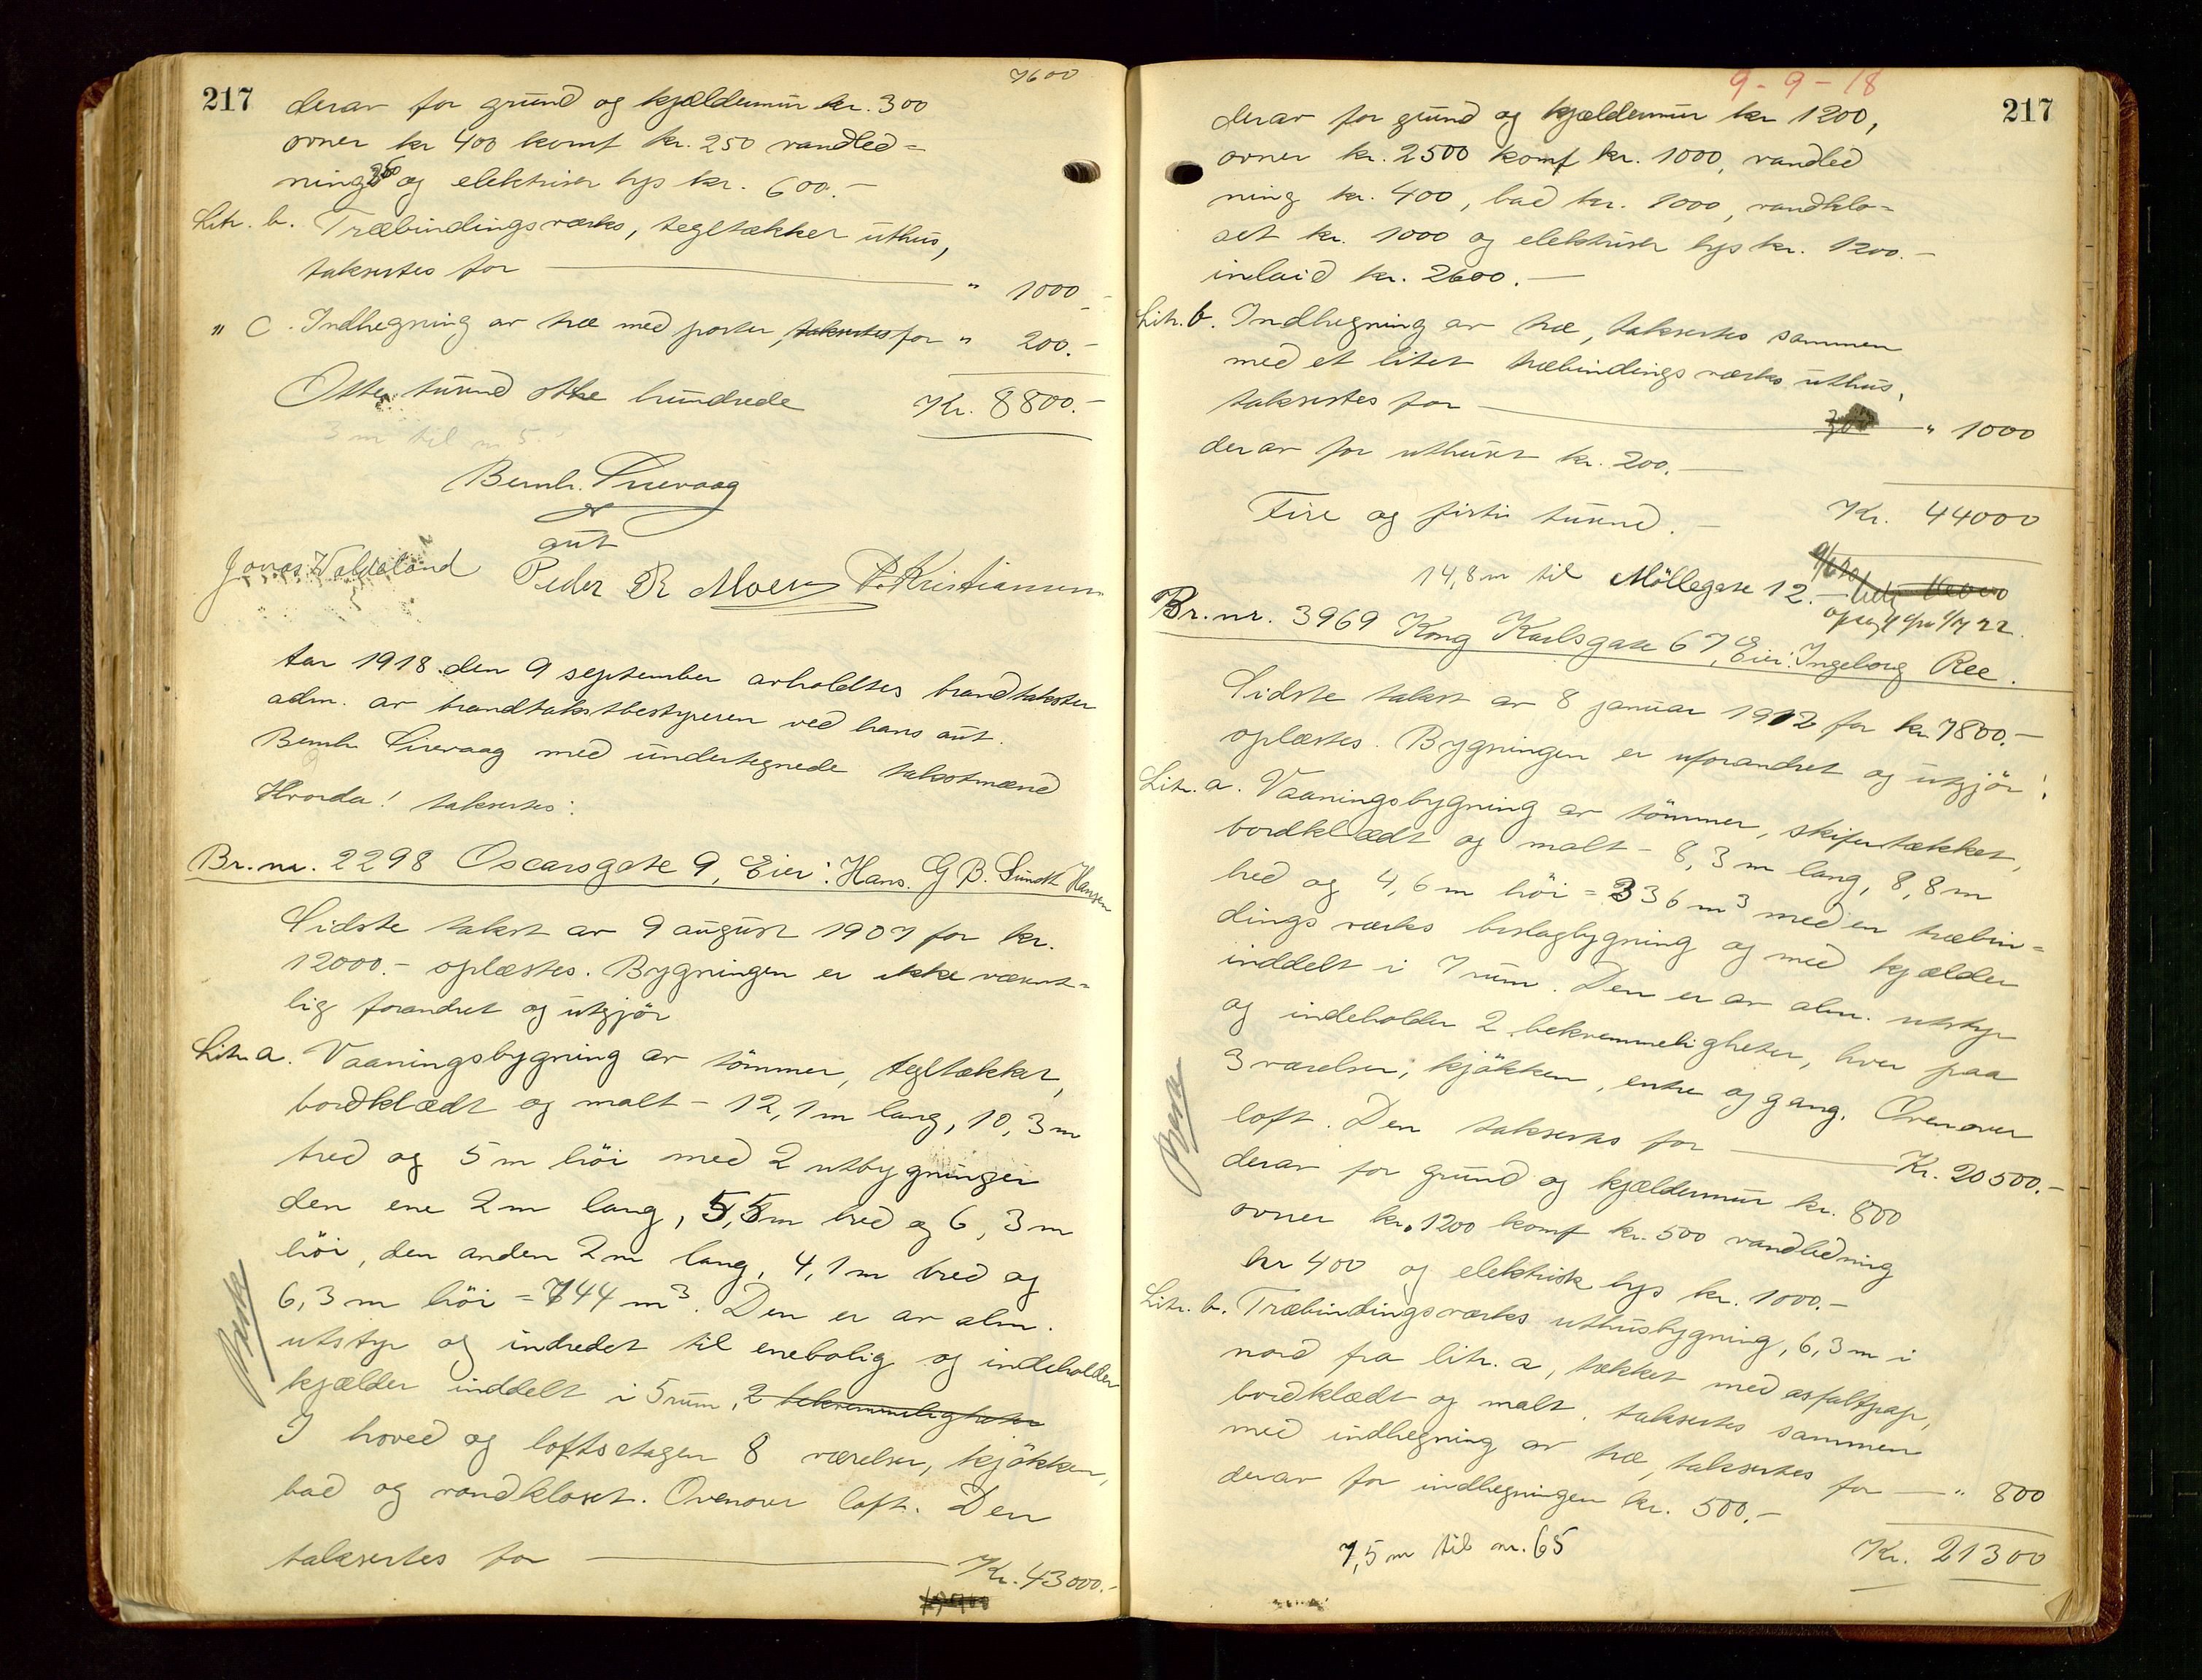 217
7600
derav for grund og kjældermur kr. 300
ovner kr 400 komf kr. 250 vandled=
ning og elektrisk lys kr. 600.-
Litr. b. Træbindingsværks, tegltækket uthus,
taksertes for " 1000.-
" C. Indhegning av træ med porter, taksertes for " 200.-
Otte tusind otte hundrede Kr. 8800.-
3 m til nr. 5.
Bernh. Sirevaag
aut
Jonas Waldeland Peder R Moen P. Kristiansen
Aar 1918 den 9 september avholdtes brandtakster
adm. av brandtakstbestyreren ved hans aut.
Bernh. Sirevaag med undertegnede takstmænd
Hvorda! taksertes:
Br. nr. 2298 Oscarsgate 9, Eier: Hans. G B. Sundt Hansen
Sidste takst av 9 august 1907 for kr.
12000.- oplæstes. Bygningen er ikke væsent=
lig forandret og utgjör
Litr. a. Vaaningsbygning av tömmer, tegltækket,
bordklædt og malt - 12,1 m lang, 10,3 m
bred og 5 m höi med 2 utbygninger
den ene 2 m lang, 5,5 m bred og 6,3 m
höi, den anden 2 m lang, 4,1 m bred og
6,3 m höi = 744 m³. Den er av alm.
utstyr og indredet til enebolig og indeholder
kjælder inddelt i 5 rum, 2 bekvemmeligheter
I hoved og loftsetagen 8 værelser, kjökken,
bad og vandkloset. Ovenover loft. Den
taksertes for Kr. 43000.-
9-9-18
217
derav for grund og kjældermur kr 1200,
ovner kr. 2500 komf kr. 1000, vandled
ning kr. 400, bad kr. 1000, vandklo=
set kr. 1000 og elektrisk lys kr. 1200.-
inlaid kr. 2600.-
Litr. b. Indhegning av træ, taksertes sammen
med et litet træbindingsværks uthus,
taksertes for " 1000
derav for uthuset kr. 200.-
Fire og firti tusind.- Kr. 44000
14,8 m til Möllegate 12.-
Br. nr. 3969 Kong Karlsgate 67, Eier: Ingeborg Ree.
Sidste takst av 8 januar 1912 for kr. 7800.-
oplæstes. Bygningen er uforandret og utgjör:
Litr. a. Vaaningsbygning av tömmer, skifertækket,
bordklædt og malt - 8,3 m lang, 8,8 m
bred og 4,6 m höi = 336 m³ med en træbin=
dingsværks beslagbygning og med kjælder
inddelt i 7 rum. Den er av alm. utstyr
og indeholder 2 bekvemmeligheter, hver paa
3 værelser, kjökken, entre og gang. Ovenover
loft. Den taksertes for Kr. 20500.-
derav for grund og kjældermur kr. 800
ovner kr. 1200 komf kr. 500 vandledning
kr 400 og elektrisk lys kr. 1000.-
Litr. b. Træbindingsværks uthusbygning, 6,3 m i
nord fra litr. a, tækket med asfaltpap,
bordklædt og malt, taksertes sammen
med indhegning av træ, taksertes for " 800
derav for indhegningen kr. 500.-
7,5 m til nr. 65 Kr. 21300